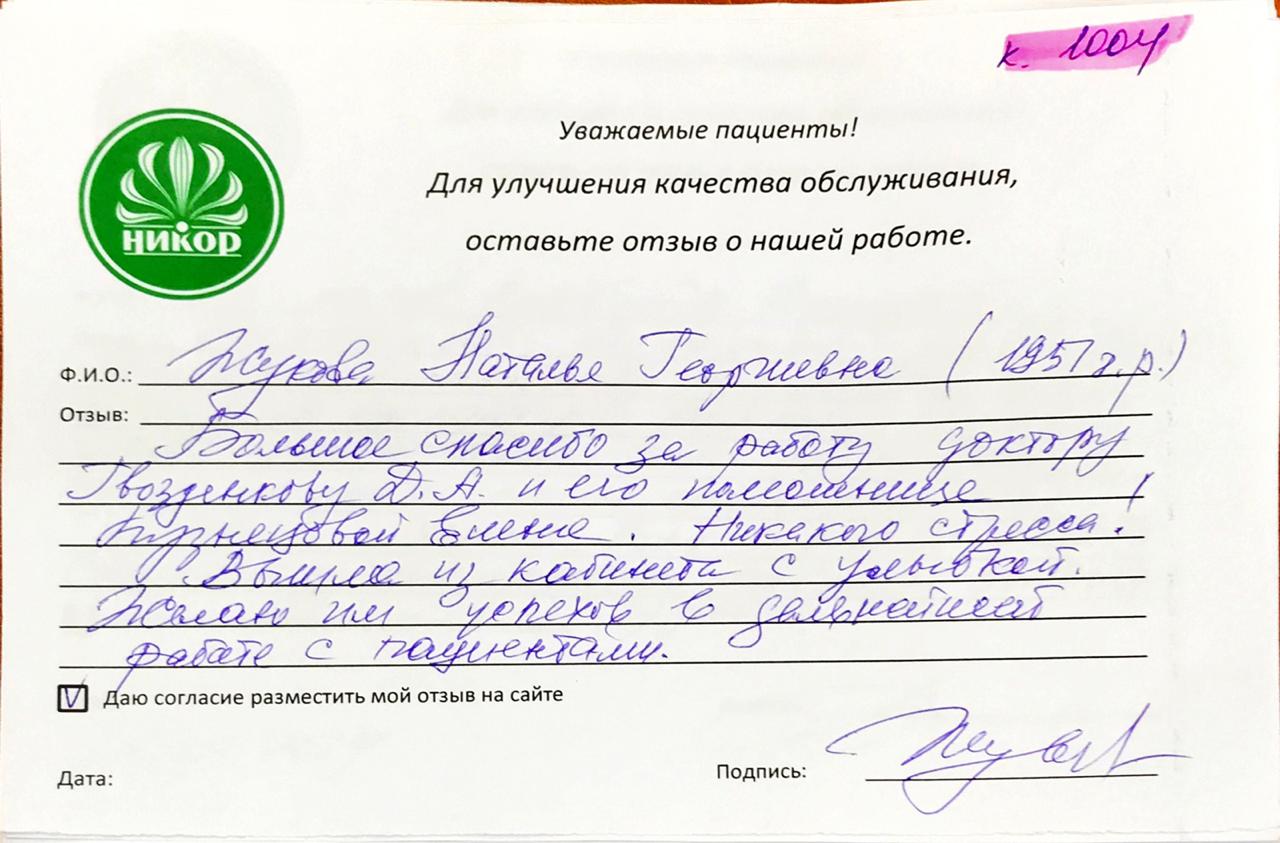 к. 1004
НИКОР
Уважаемые пациенты!
Для улучшения качества обслуживания,
оставьте отзыв о нашей работе.
Ф.И.О.: Жукова Наталья Георгиевна (1951 г.р.)
Отзыв:
Большое спасибо за работу доктору
Гвозденкову Д.А. и его помощнице
Кузнецовой Елене. Никакого стресса!
Вышла из кабинета с улыбкой.
Желаю им успехов в дальнейшей
работе с пациентами.
V Даю согласие разместить мой отзыв на сайте
Дата:
Подпись: Жукова